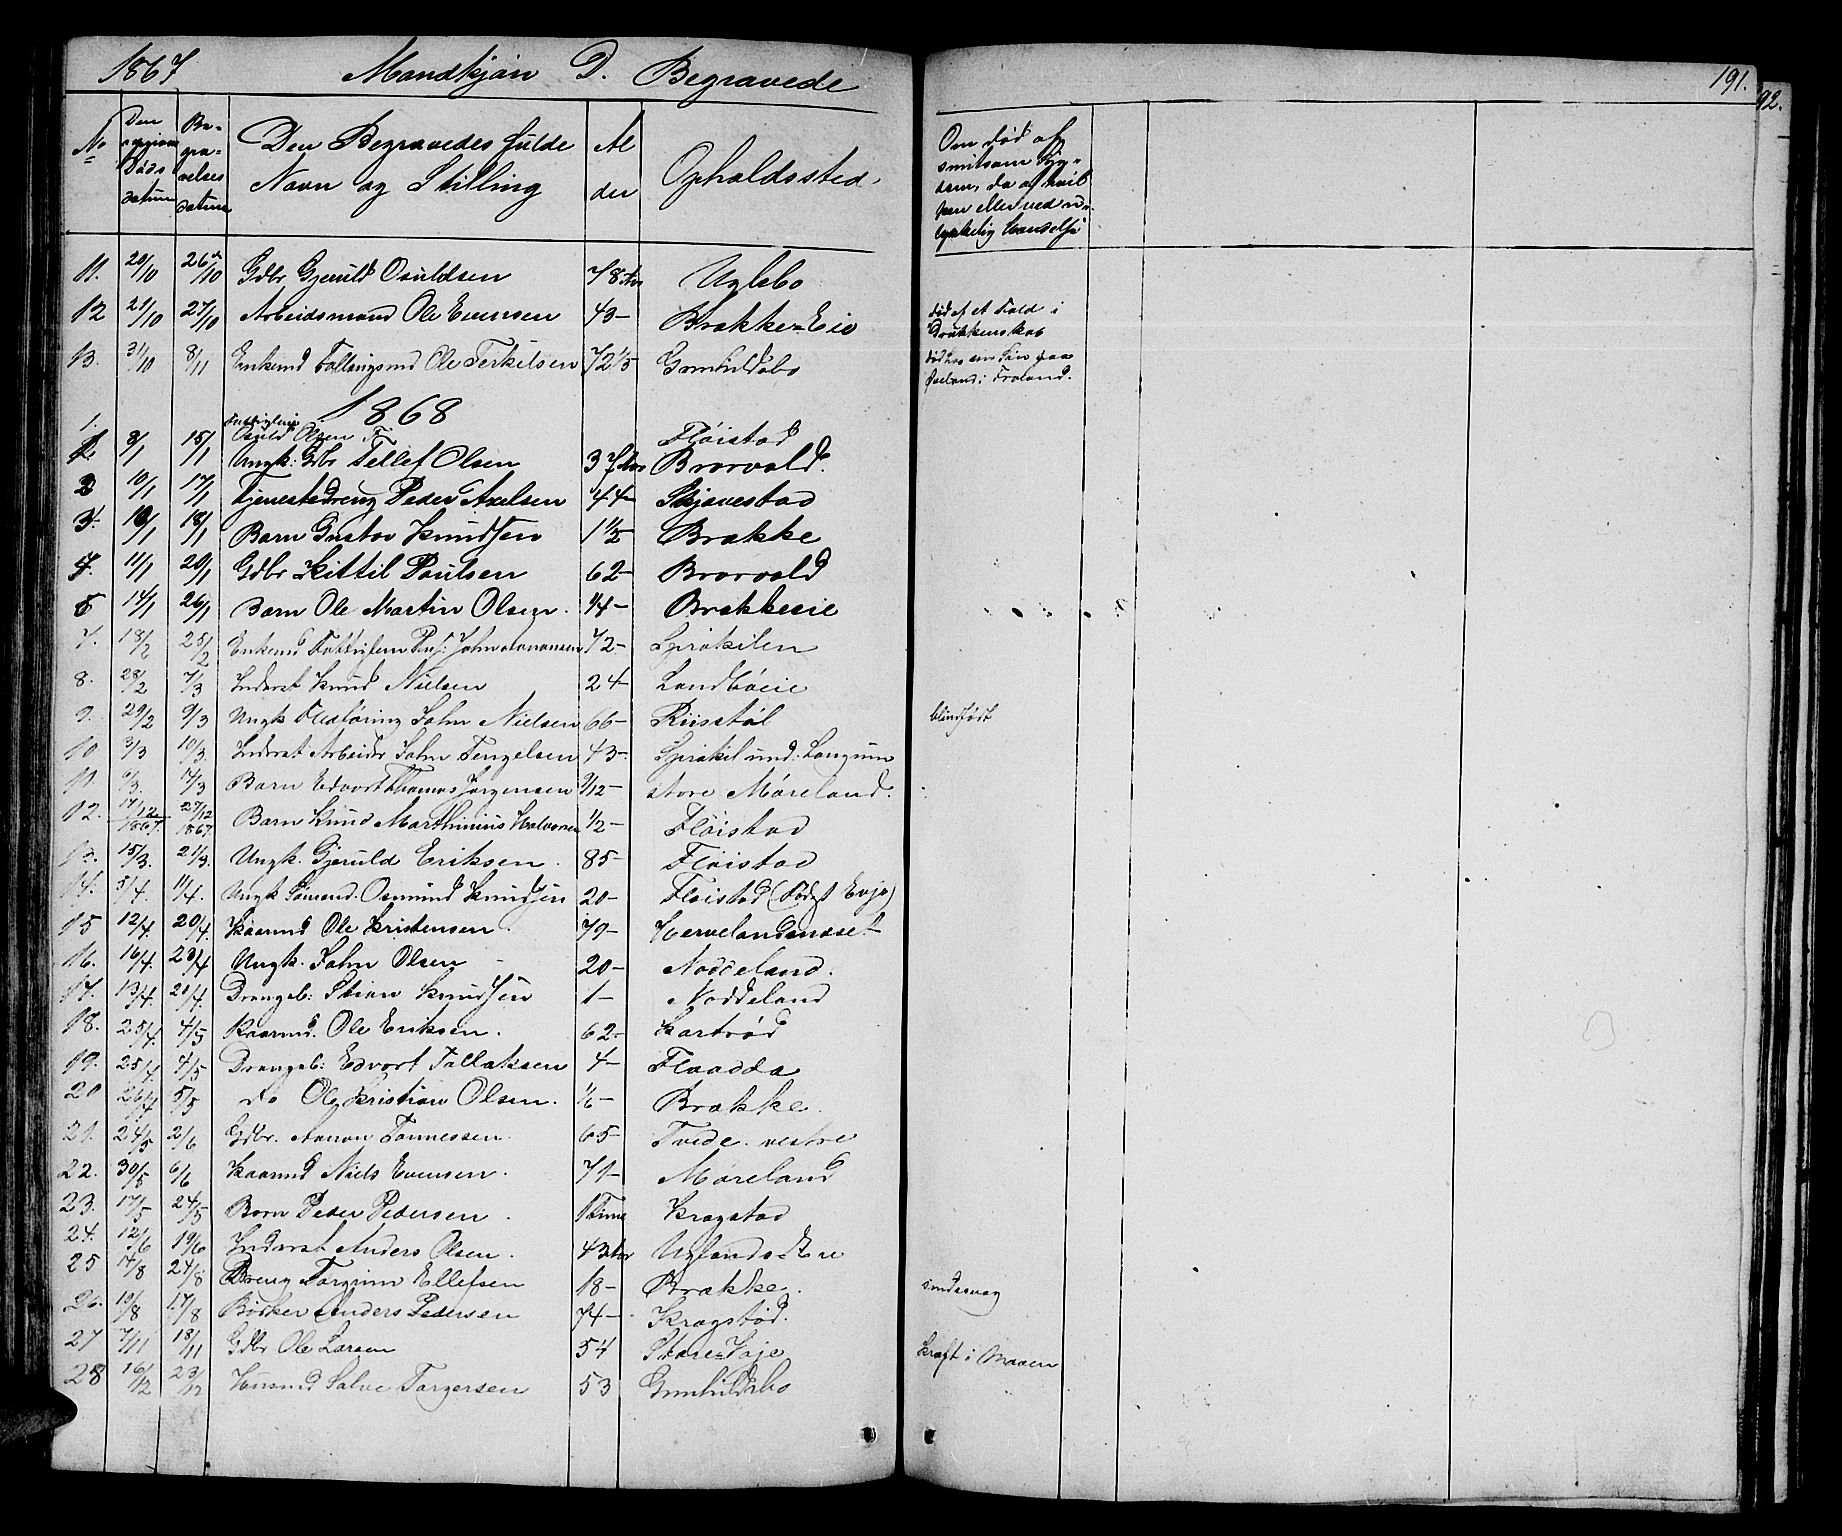 1867 Mandkjøn D. Begravede 191. 92.
No Den Døds datum Be- gra- velses datum Den Begravedes fulde Navn og Stilling Al der Opholdssted Om død af smitsom Syg- dom, da af hvil ken eller ved u- lykkelig Hændelse
11. 20/10 26/10 Gdbr Gjeruld Osuldsen 78 Aar Uglebo
12 21/10 27/10 Arbeidsmand Ole Evensen 43- Brække-Eie død af et Fald i Drukkenskab
13. 31/10 8/11 Enkemd Ole Terkelsen 72 1/3 Gunhildsbo død hos en Søn paa i Froland.
1868
1. Fattiglem Osuld Olsen Fløistad
2. 8/1 15/1 Ungk: Gdbr Tellef Olsen 37 Aar Brorvold.
2 10/1 17/1 Tjenestedreng Peder Axelsen 44- Skjævestad
3. 10/1 18/1 Barn Gustav Knudsen 1 1/2 Brække
4. 11/1 20/1 Gdbr Kittil Poulsen 62- Brorvold
5 14/1 26/1 Barn Ole Martin Olsen. 1/4- Brækkeeie
7. 18/2 25/2 Enkemd Fattiglem 72- Spirekilen
8. 28/2 7/3 Inderst Knud Nielsen 24- Landbøeie
9. 29/2 9/3 Ungk Flekføring John Nielsen 66- Riisstøl blindfødt
10 3/3 10/3. Inderst Arbeidr John Tengelsen 43- Spirekil und: Langum
11. 6/3. 14/3 Barn Edvart Thomas Jørgensen 1/12- store Møreland.
12. 17/12 1867. 27/12 1867. Barn Knud Marthinius Halvorsen 1/2- Fløistad
13. 15/3. 21/3. Ungk. Gjeruld Eriksen. 85- Fløistad
14. 5/4. 11/4. Ungk Sømand. Osmund Knudsen 20- Fløistad (Født Evje)
15 12/4. 20/4. Kaarmd Ole Kristensen. 79- Hervelandsnæset
16. 16/4. 20/4 Ungk. John Olsen 20- Noddeland.
17. 13/4. 20/4. Drengeb: Stian Knudsen 1- Noddeland
18. 25/4. 4/5 Kaarmd. Ole Eriksen. 62- Kartrød
19. 25/4 4/5 Drengeb: Edvart Tallaksen 4- Flaadda
20 26/4 5/5 do Ole Kristian Olsen. 1/6- Brække.
21. 24/5 2/6 Gdbr. Aanon Tønnessen. 65- Tvede. vestre
22. 30/5 6/6 Kaarmd Niels Evensen. 71- Møreland
23. 17/5 24/5 Barn Peder Pedersen. 1 Time Kragstad
24. 12/6 19/6 Inderst Anders Olsen. 43 Aar Uglands-Eie
25 14/8 24/8 Dreng Torginn Ellefsen 18- Brække. sindssvag
26. 10/8 17/8 Bødker Anders Pedersen 74- Kragstød.
27 7/11 18/11 Gdbr Ole Larsen 54 Store-Søje kræft i Maven
28 16/12 23/12 Husmd Salve Torgersen 53 Gunhildsbo